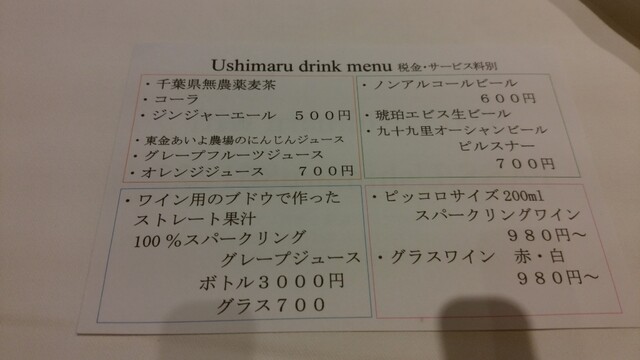 Ushimaru drink menu 税金・サービス料別
・千葉県無農薬麦茶
・コーラ
・ジンジャーエール ５００円
・東金あいよ農場のにんじんジュース
・グレープフルーツジュース
・オレンジジュース ７００円
・ノンアルコールビール
６００円
・琥珀エビス生ビール
・九十九里オーシャンビール
ピルスナー
７００円
・ワイン用のブドウで作った
ストレート果汁
100％スパークリング
グレープジュース
ボトル３０００円
グラス７００
・ピッコロサイズ200ml
スパークリングワイン
９８０円～
・グラスワイン 赤・白
９８０円～